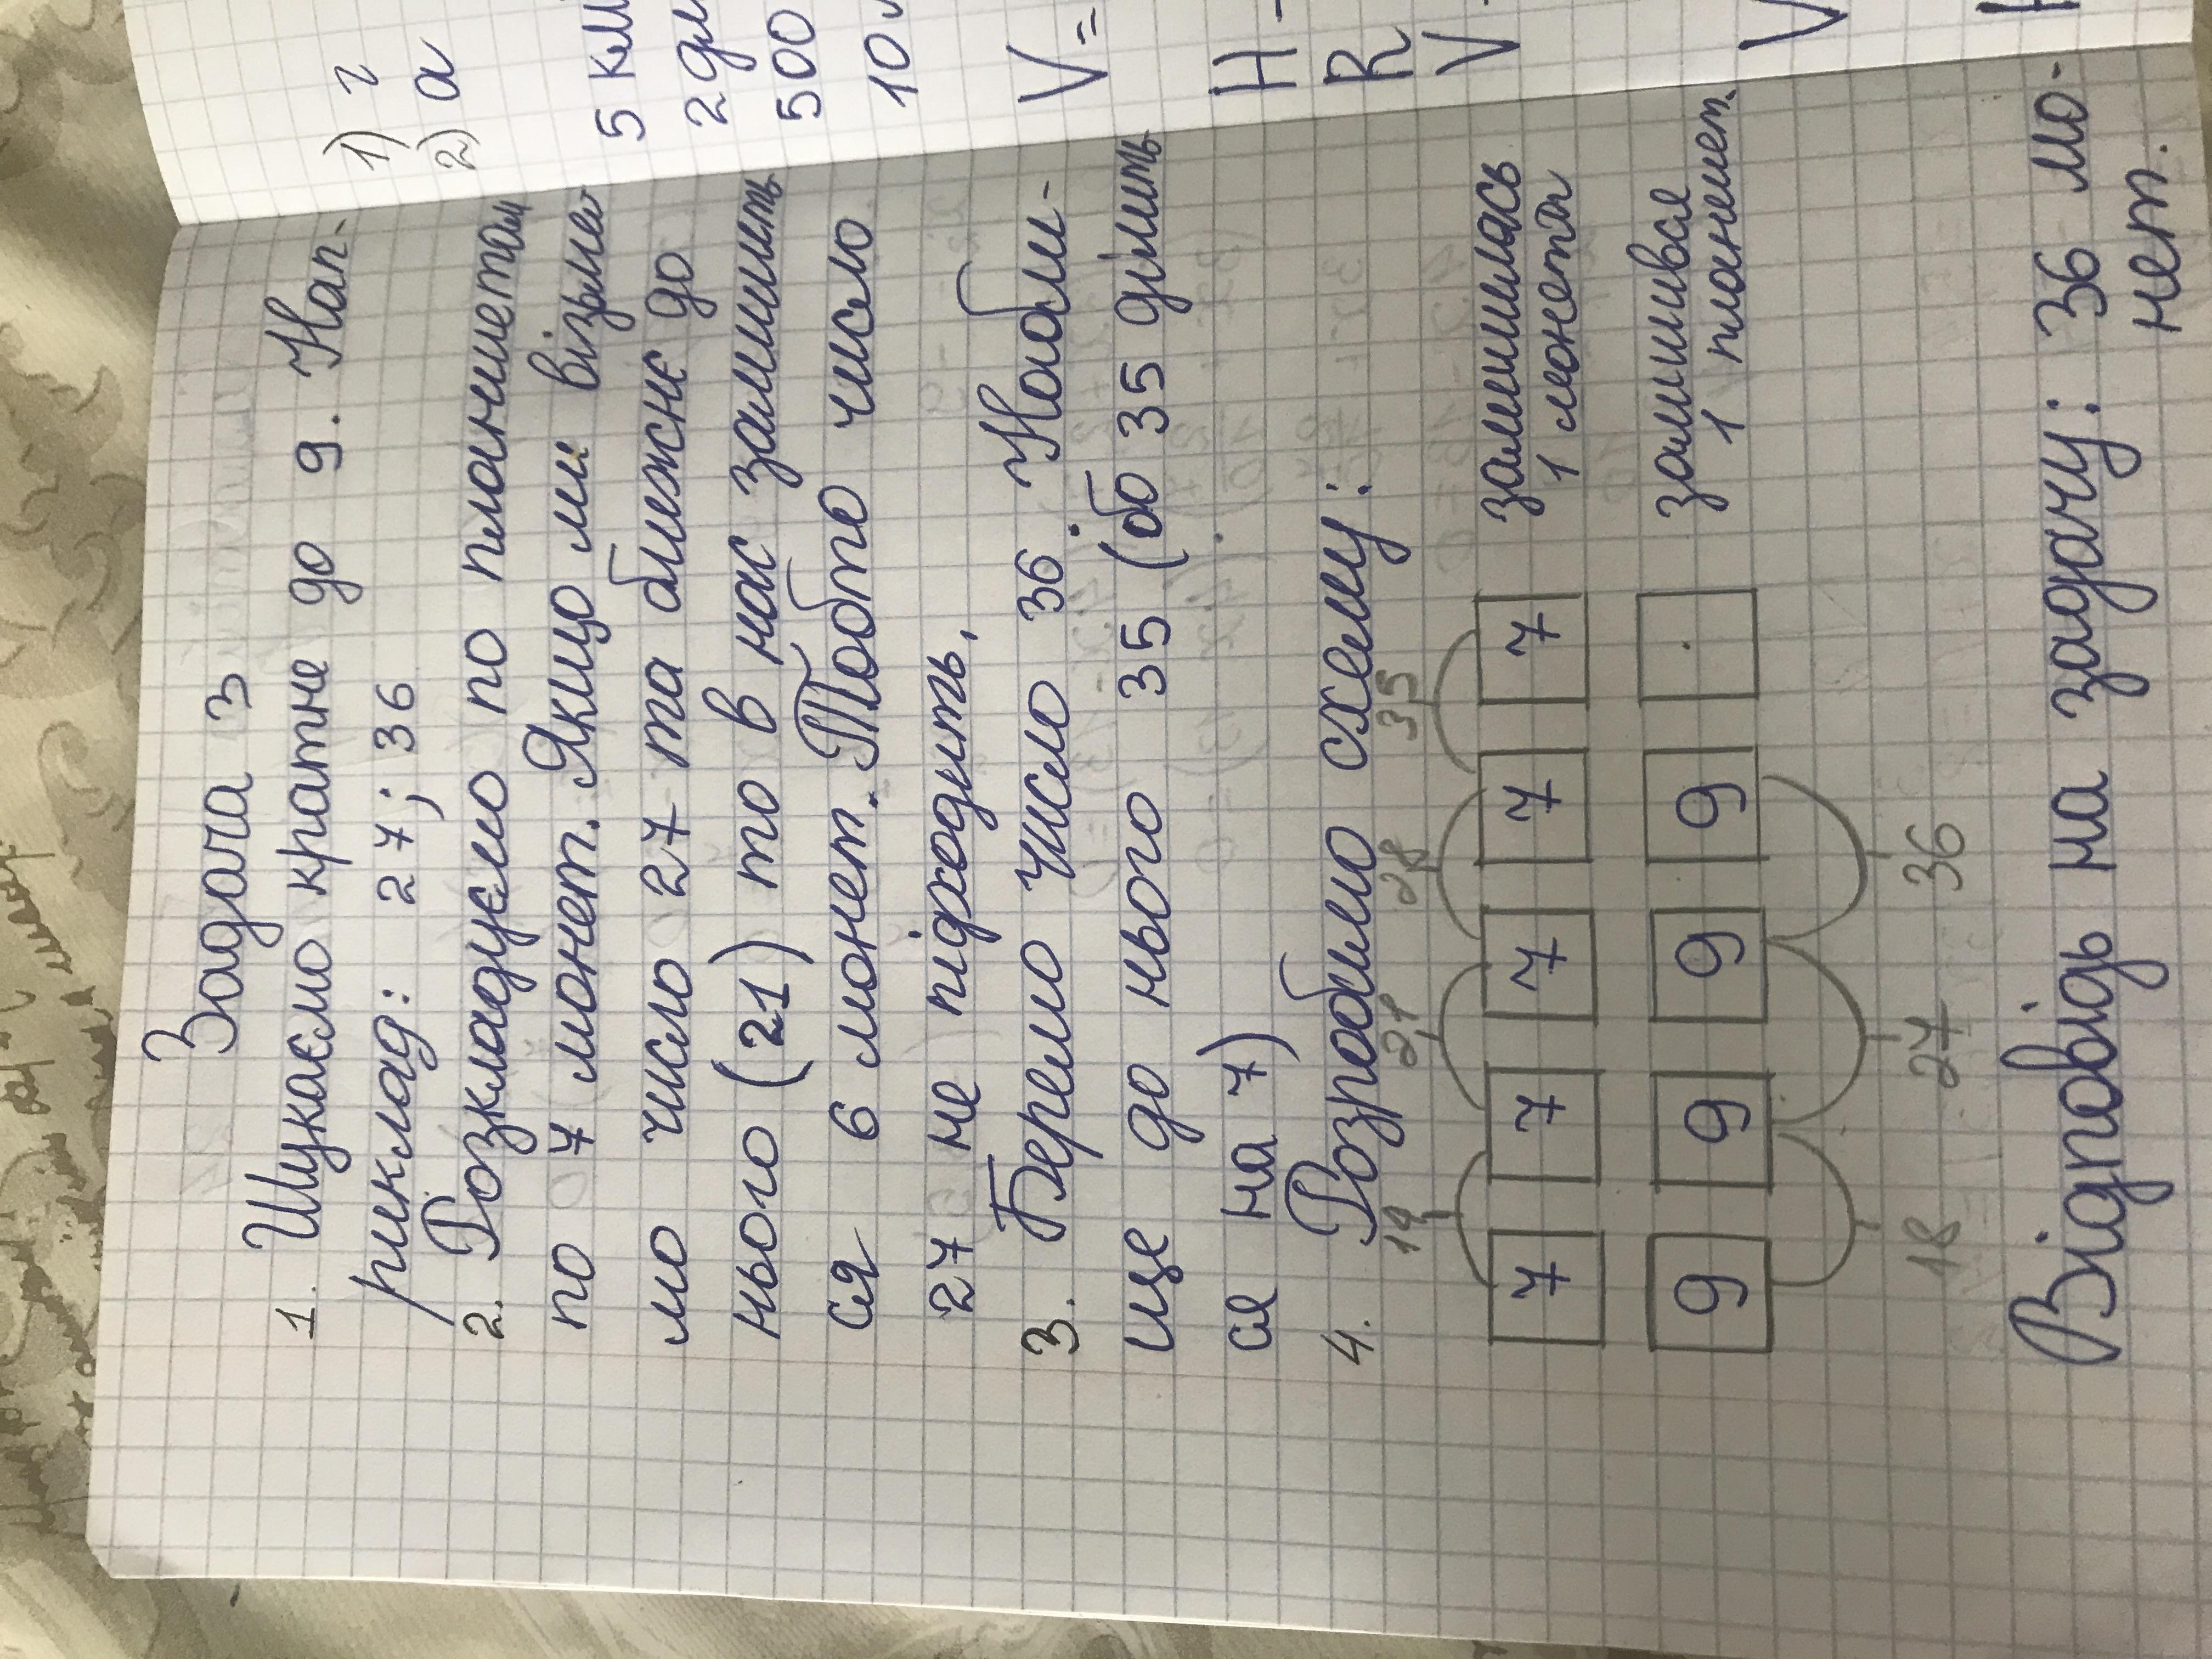 Задача 3
1. Шукаємо кратне до 9. Нап-
риклад: 27; 36
2. Розкладуємо по планшетам
по 7 монет. Якщо ми візьме
мо число 27 та ближнє до
нього (21) то в нас залишить
ся 6 монет. Тобто число
27 не підходить.
3. Беремо число 36. Найбли-
ще до нього 35 (бо 35 ділить
ся на 7)
4. Розробимо схему:
14 21 28 35
7 7 7 7 7 залишилась
1 монета
9 9 9 9 залишився
1 планшет
18 27 36
Відповідь на задачу: 36 мо-
нет.
1) г
2) а
5 км
2 дм
500
10
V =
H -
R
V
V